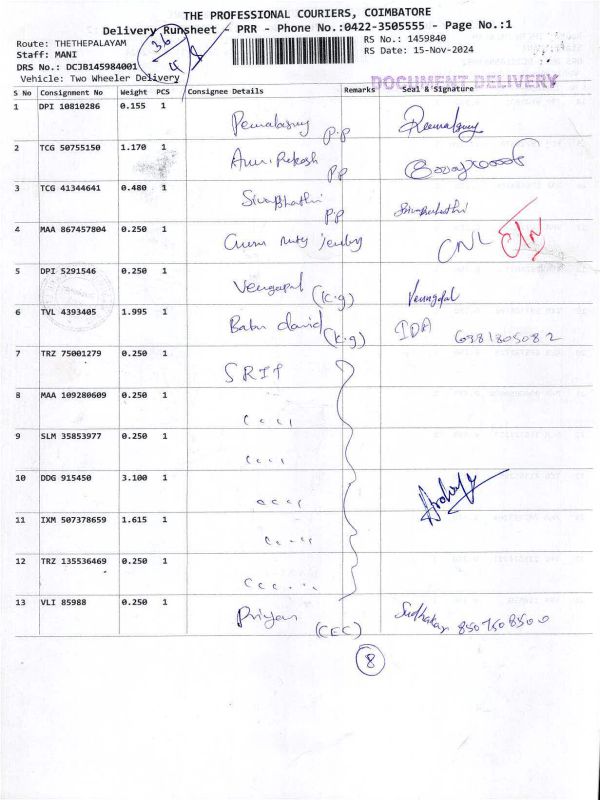 THE PROFESSIONAL COURIERS, COIMBATORE
Delivery Runsheet - PRR - Phone No.:0422-3505555 - Page No.:1
Route: THETHEPALAYAM RS No.: 1459840
Staff: MANI RS Date: 15-Nov-2024
DRS No.: DCJB145984001
Vehicle: Two Wheeler Delivery
36
4
DOCUMENT DELIVERY
S No Consignment No Weight PCS Consignee Details Remarks Seal & Signature
1 DPI 10810286 0.155 1 P.P
2 TCG 50755150 1.170 1 P.P
3 TCG 41344641 0.480 1 P.P
4 MAA 867457804 0.250 1 CNL
5 DPI 5291546 0.250 1 Vengopal (K.g)
6 TVL 4393405 1.995 1 Babu david (K.g) IDA 6381805082
7 TRZ 75001279 0.250 1
8 MAA 109280609 0.250 1
9 SLM 35853977 0.250 1
10 DDG 915450 3.100 1
11 IXM 507378659 1.615 1
12 TRZ 135536469 0.250 1
13 VLI 85988 0.250 1 Priyan (CEC) Sudhakar
8